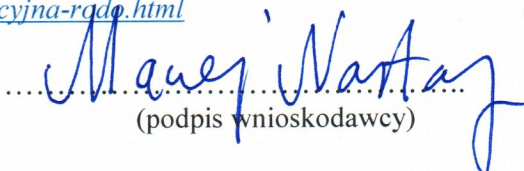 cyjna-rodo.html
Maciej
(podpis wnioskodawcy)